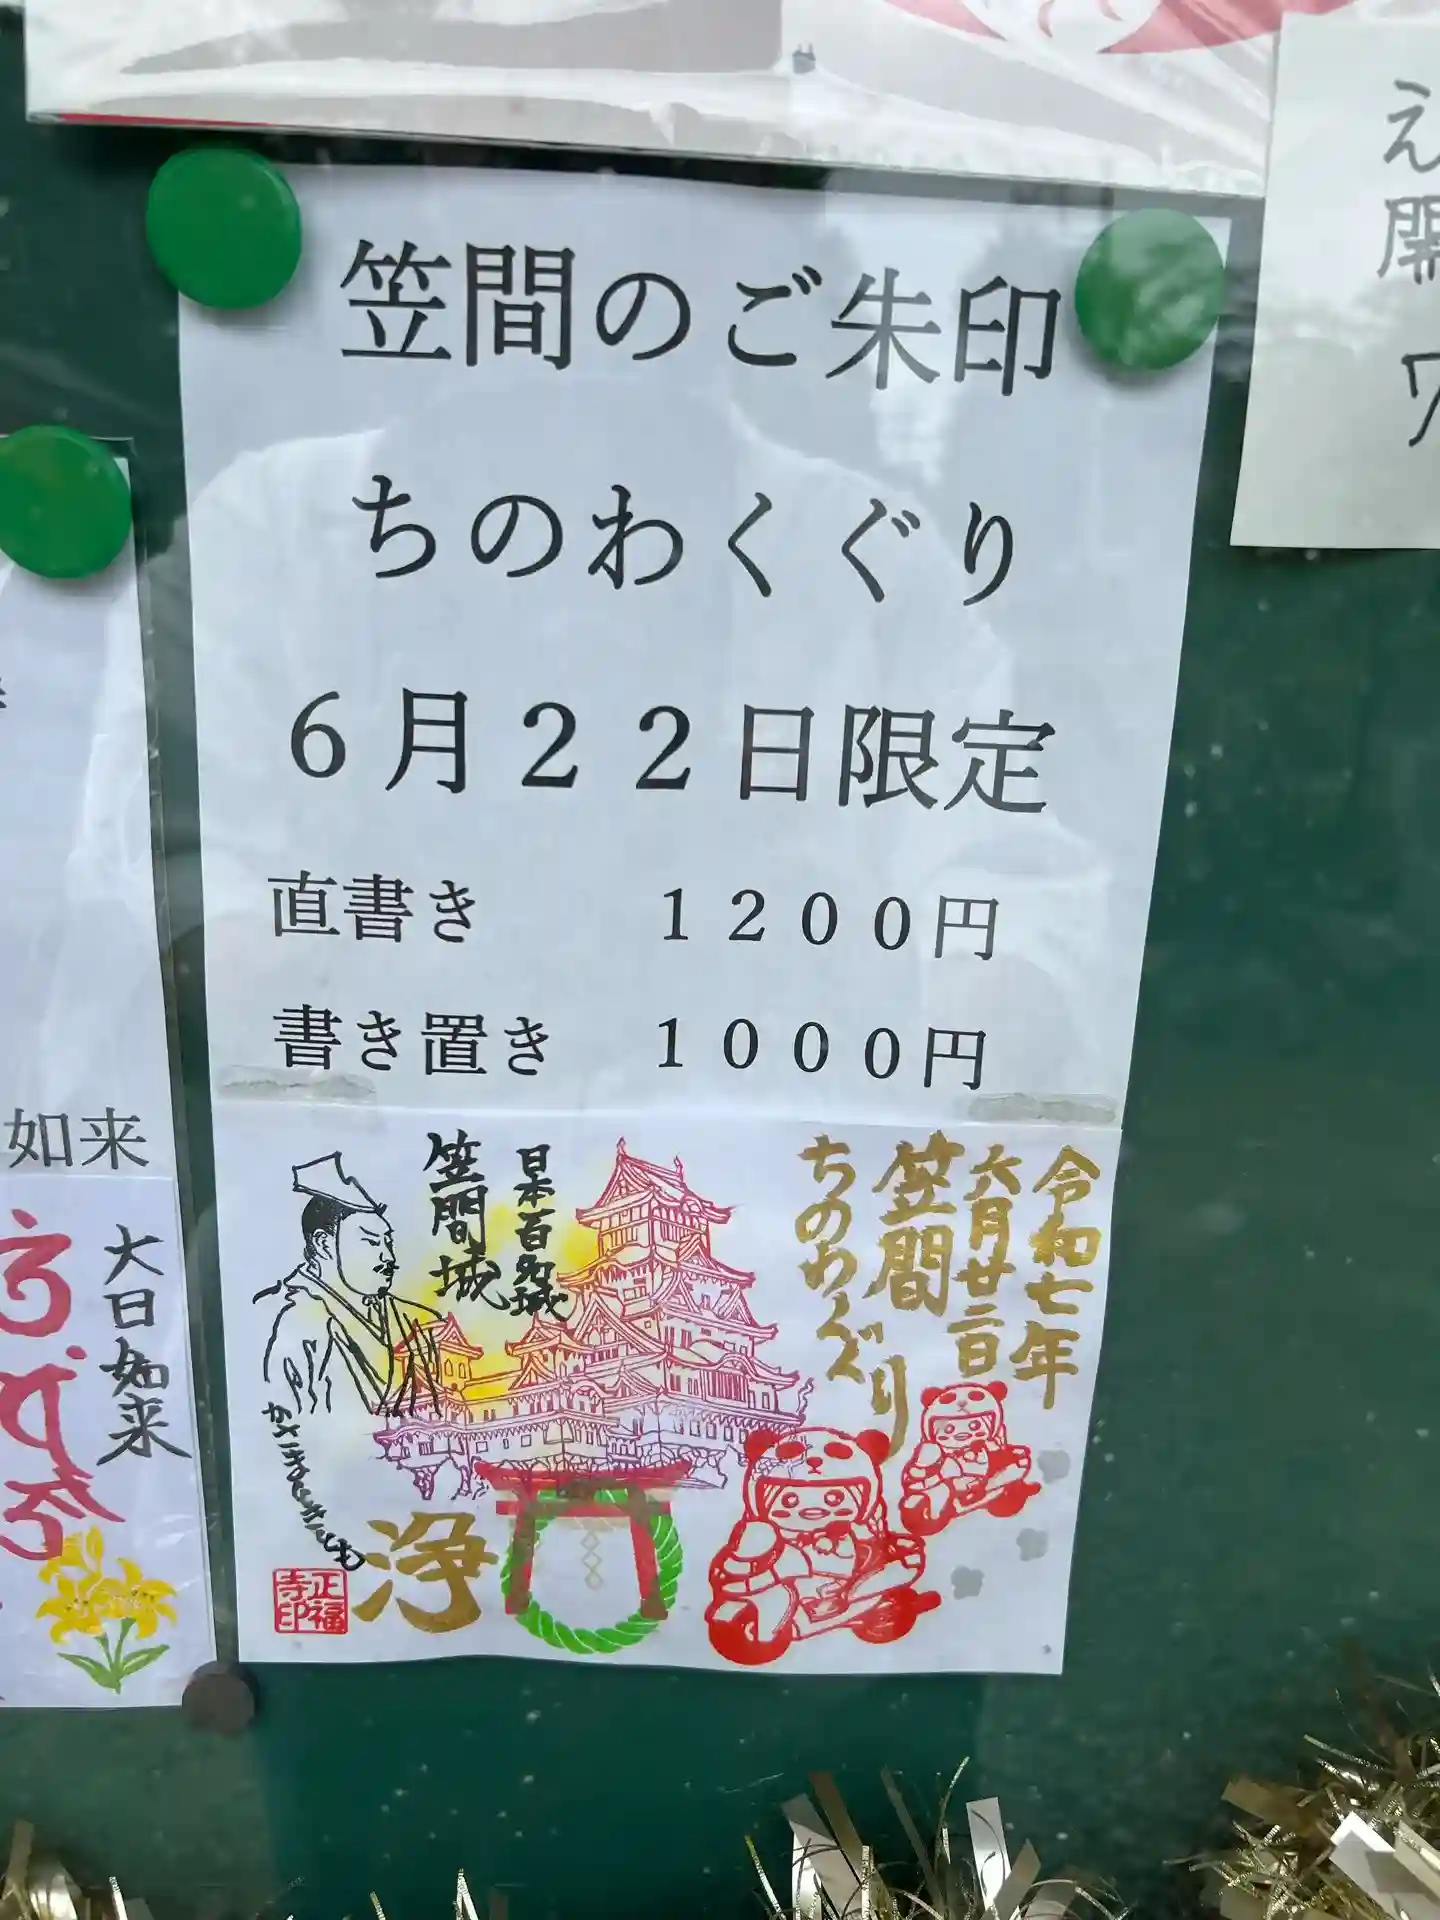 笠間のご朱印
ちのわくぐり
6月22日限定
直書き 1200円
書き置き 1000円
令和七年
六月廿二日
笠間
ちのわくぐり
日本百名城
笠間城
浄
正福
寺印
如来
大日如来
え
開
ワ